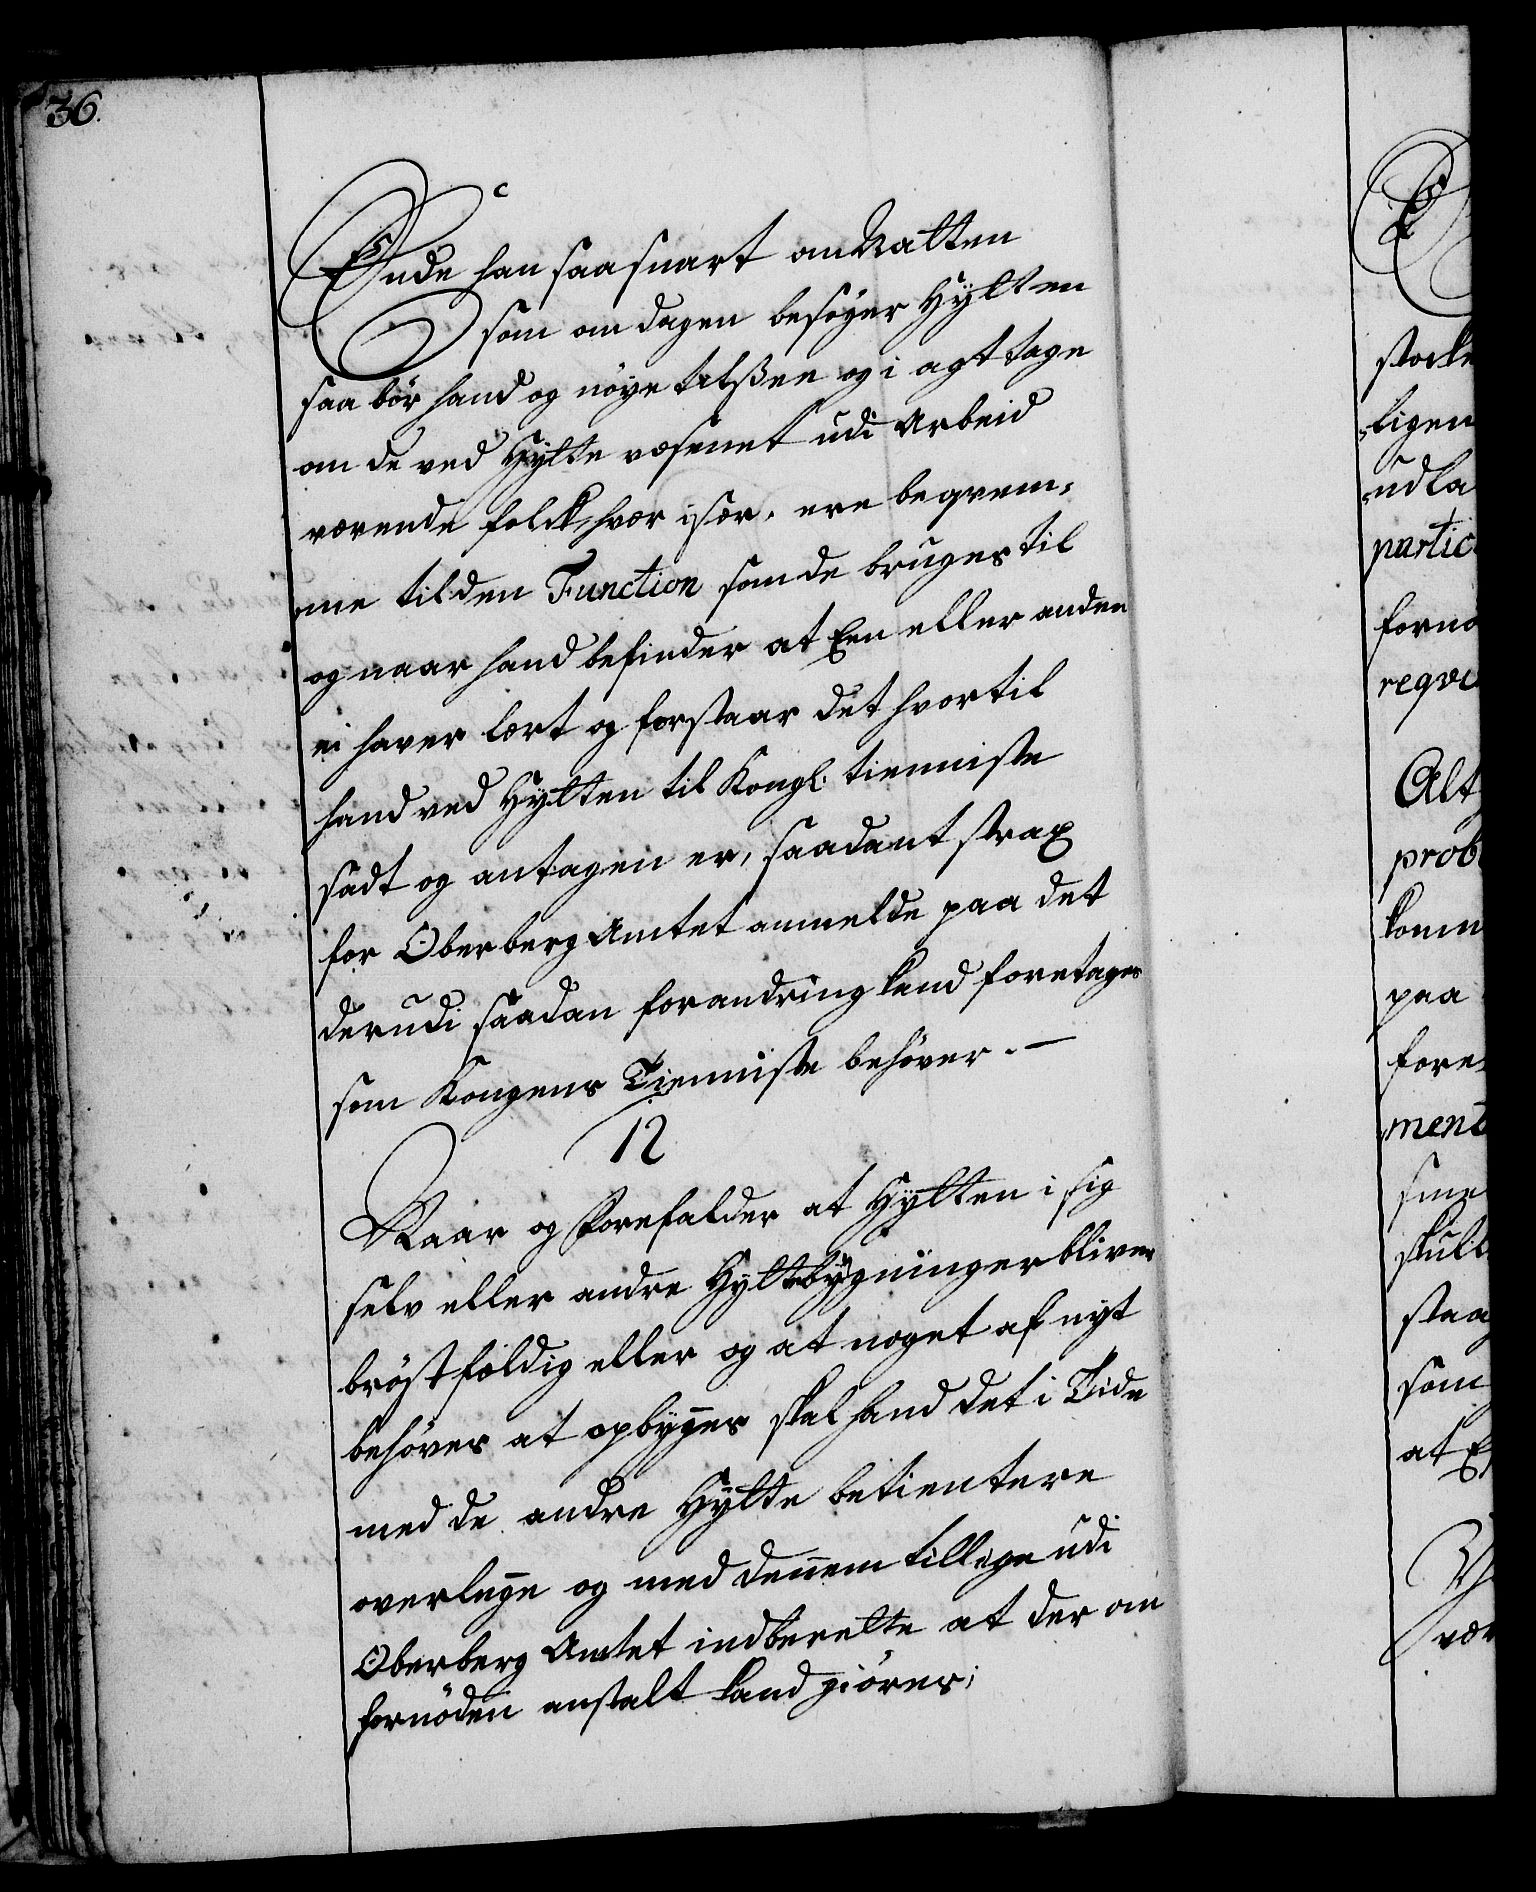 36.
Ende han saa snart om Natten
som om dagen besøger Hÿtten
saa bør hand og nøye tilsee og i agt tage
om de ved Hÿtte væsenet udi Arbeid
værende folck, hvor især, ere beqvem„
me til den Function som de bruges til
og naar hand befinder at Een eller anden
ei haver lært og forstaar det hvortil
hand ved Hÿtten til Kongl: tienniste
sadt og antagen er, saadant strax
for Oberberg Amtet anmelde paa det
derudi saadan forandring kand foretages
som Kongens Tienniste behøver.—
12
Naar og forefalder at Hÿtten i sig
selv eller andre Hÿttebÿgninger bliver
brøstfældig eller og at noget af nyt
behøves at opbygges skal hand det i Tide
med de andre Hÿtte betientere
overlegge og med dennem tillige udi
Oberberg Amtet indberette at der om
fornøden anstalt kand giøres;
partic
Alt
prob
paa
ment
som